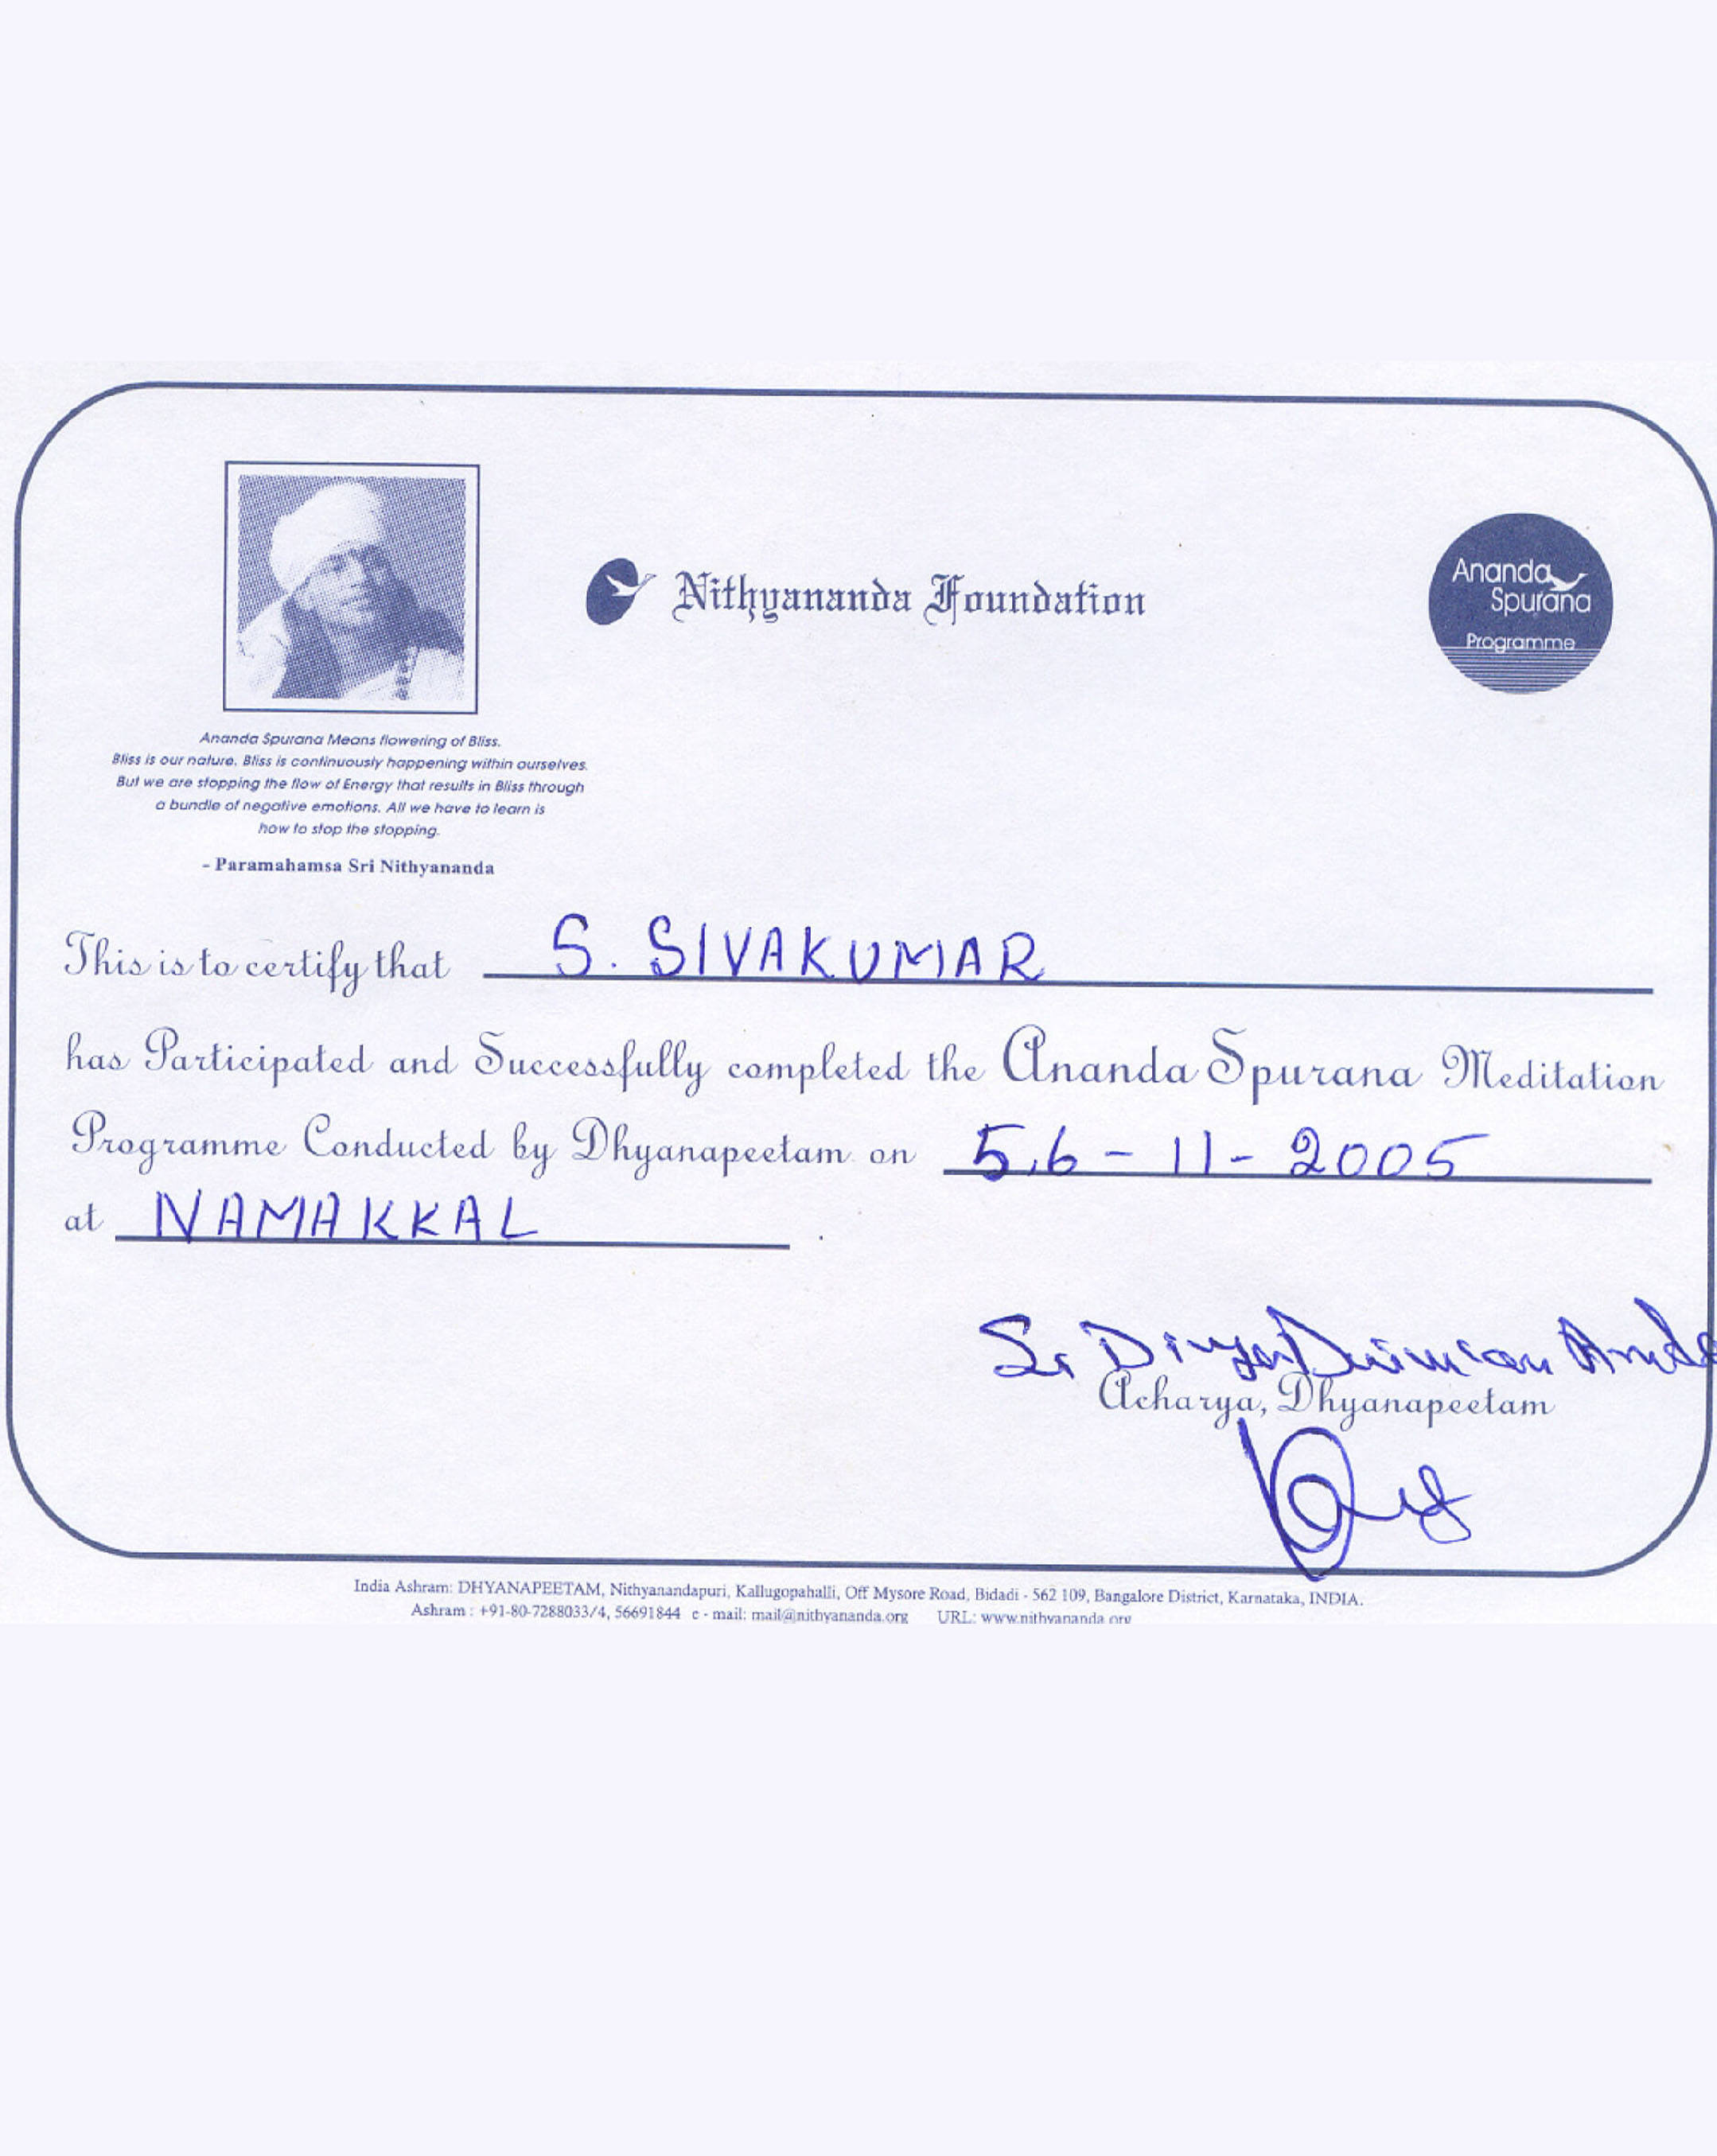 Nithyananda Foundation
Ananda
Spurana
Programme
Ananda Spurana Means flowering of Bliss.
Bliss is our nature. Bliss is continuously happening within ourselves.
But we are stopping the flow of Energy that results in Bliss through
a bundle of negative emotions. All we have to learn is
how to stop the stopping.
- Paramahamsa Sri Nithyananda
This is to certify that S. SIVAKUMAR
has Participated and Successfully completed the Ananda Spurana Meditation
Programme Conducted by Dhyanapeetam on 5,6 - 11 - 2005
at NAMAKKAL .
Acharya, Dhyanapeetam
India Ashram: DHYANAPEETAM, Nithyanandapuri, Kallugopahalli, Off Mysore Road, Bidadi - 562 109, Bangalore District, Karnataka, INDIA.
Ashram : +91-80-7288033/4, 56691844 e - mail: mail@nithyananda.org URL: www.nithyananda.org